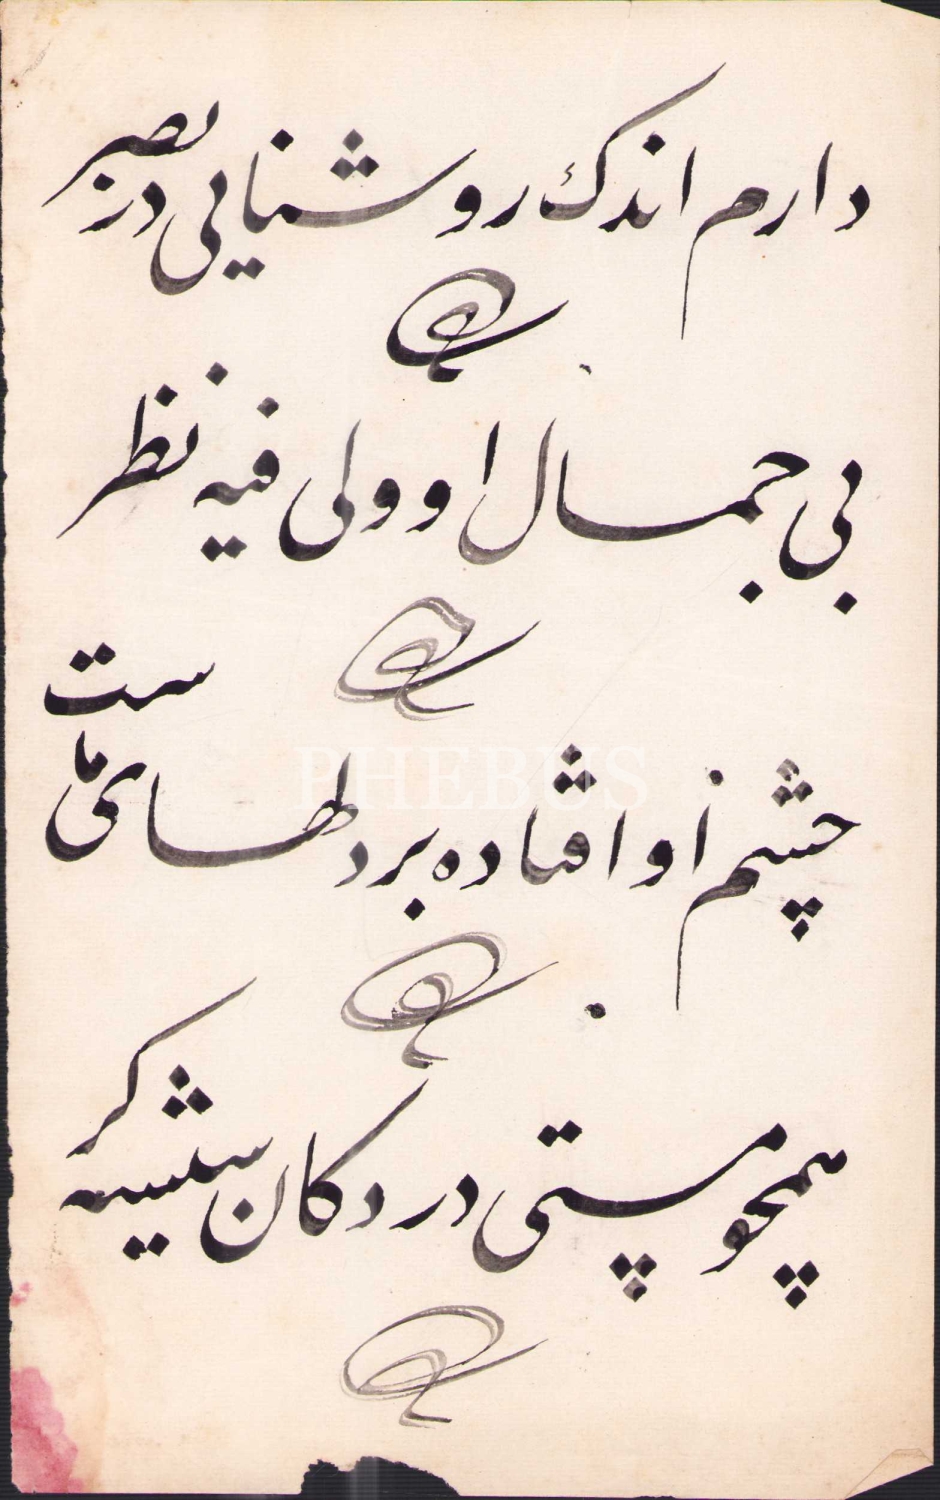 دارم اندک روشنایی در بصر
بی جمال او ولی فیه نظر
چشم او افتاده بر دلهای ماست
همچو مستی در دکان شیشه گر
PHEBUS